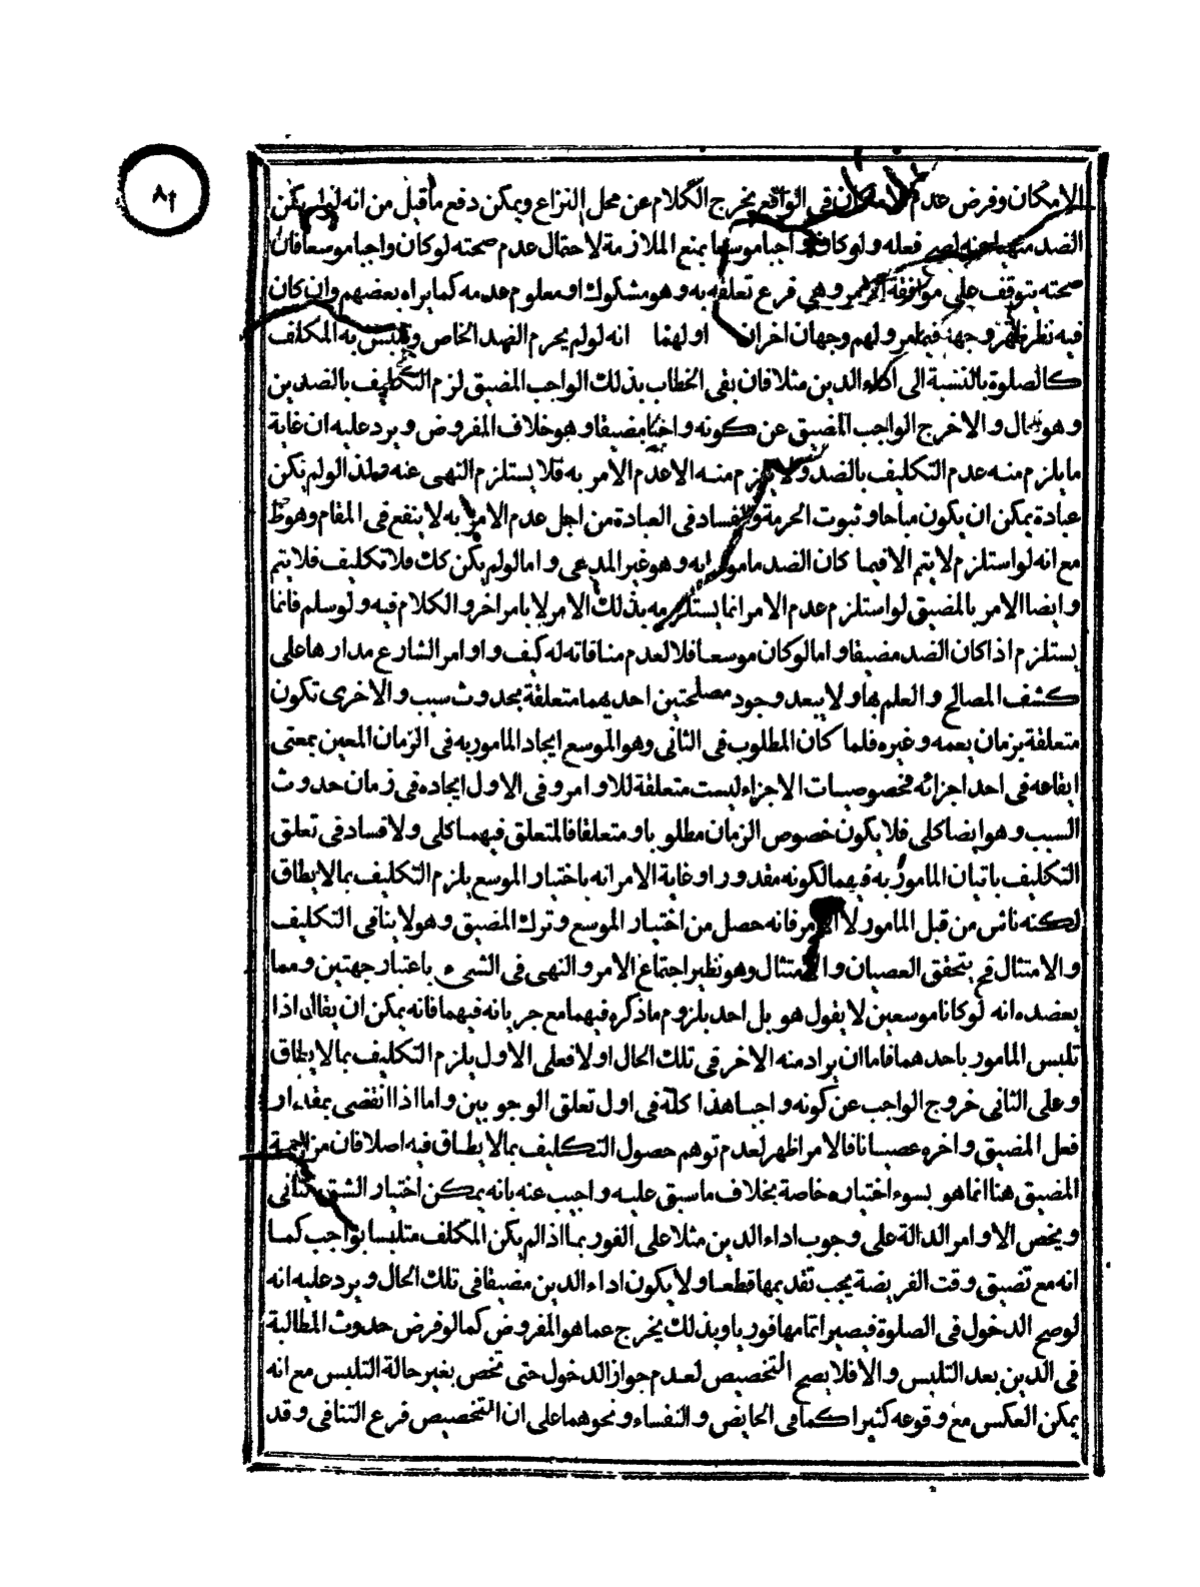 ٨٢
الامكان وفرض عدم الامكان فى الواقع يخرج الكلام عن محل النزاع ويمكن دفع ما قيل من انه لو لم يكن
الضد منهيا عنه لصح فعله ولو كان واجبا موسعا بمنع الملازمة لاحتمال عدم صحته لو كان واجبا موسعا فان
صحته يتوقف على موافقة الامر وهى فرع تعلقه به وهو مشكوك او معلوم عدمه كما يراه بعضهم وان كان
فيه نظر ظهر وجهه فيما مر ولهم وجهان اخران اولهما انه لو لم يحرم الضد الخاص وتلبس به المكلف
كالصلوة بالنسبة الى اداء الدين مثلا فان بقى الخطاب بذلك الواجب المضيق لزم التكليف بالضدين
وهو محال والا خرج الواجب المضيق عن كونه واجبا مضيقا وهو خلاف المفروض ويرد عليه ان غاية
ما يلزم منه عدم التكليف بالضد ولا يلزم منه الا عدم الامر به فلا يستلزم النهى عنه فلذا لو لم يكن
عبادة يمكن ان يكون مباحا وثبوت الحرمة والفساد فى العبادة من اجل عدم الامر به لا ينفع فى المقام وهو ظ
مع انه لو استلزم لا يتم الا فيما كان الضد مامورا به وهو غير المدعى واما لو لم يكن كك فلا تكليف فلا يتم
وايضا الامر بالمضيق لو استلزم عدم الامر انما يستلزمه بذلك الامر لا بامر اخر والكلام فيه ولو سلم فانما
يستلزم اذا كان الضد مضيقا واما لو كان موسعا فلا لعدم منافاته له كيف واوامر الشارع مدارها على
كشف المصالح والعلم بها ولا يبعد وجود مصلحتين احديهما متعلقة بحدوث سبب والاخرى تكون
متعلقة بزمان يعمه وغيره فلما كان المطلوب فى الثانى وهو الموسع ايجاد المامور به فى الزمان المعين بمعنى
ايقاعه فى احد اجزائه فخصوصيات الاجزاء ليست متعلقة للاوامر وفى الاول ايجاده فى زمان حدوث
السبب وهو ايضا كلى فلا يكون خصوص الزمان مطلوبا ومتعلقا فالمتعلق فيهما كلى ولا فساد فى تعلق
التكليف باتيان المامور به فيهما لكونه مقدورا وغاية الامر انه باختيار الموسع يلزم التكليف بما لا يطاق
لكنه ناش من قبل المامور لا الامر فانه حصل من اختيار الموسع وترك المضيق وهو لا ينافى التكليف
والامتثال فح يتحقق العصيان والامتثال وهو نظير اجتماع الامر والنهى فى الشىء باعتبار جهتين ومما
يعضده انه لو كانا موسعين لا يقول هو بل احد بلزوم ما ذكره فيهما مع جريانه فيهما فانه يمكن ان يقال اذا
تلبس المامور باحدهما فاما ان يراد منه الاخر فى تلك الحال اولا فعلى الاول يلزم التكليف بما لا يطاق
وعلى الثانى خروج الواجب عن كونه واجبا هذا كله فى اول تعلق الوجوبين واما اذا انقضى بمقدار
فعل المضيق واخره عصيانا فالامر اظهر لعدم توهم حصول التكليف بما لا يطاق فيه اصلا فان مزاحمة
المضيق هنا انما هو بسوء اختياره خاصة بخلاف ما سبق عليه واجيب عنه بانه يمكن اختيار الشق الثانى
ويخص الاوامر الدالة على وجوب اداء الدين مثلا على الفور بما اذا لم يكن المكلف متلبسا بواجب كما
انه مع تضيق وقت الفريضة يجب تقديمها قطعا ولا يكون اداء الدين مضيقا فى تلك الحال ويرد عليه انه
لو صح الدخول فى الصلوة فيصير اتمامها فوريا وبذلك يخرج عما هو المفروض كما لو فرض حدوث المطالبة
فى الدين بعد التلبس والا فلا يصح التخصيص لعدم جواز الدخول حتى تخص بغير حالة التلبس مع انه
يمكن العكس مع وقوعه كثيرا كما فى الحايض والنفساء ونحوهما على ان التخصيص فرع التنافى وقد